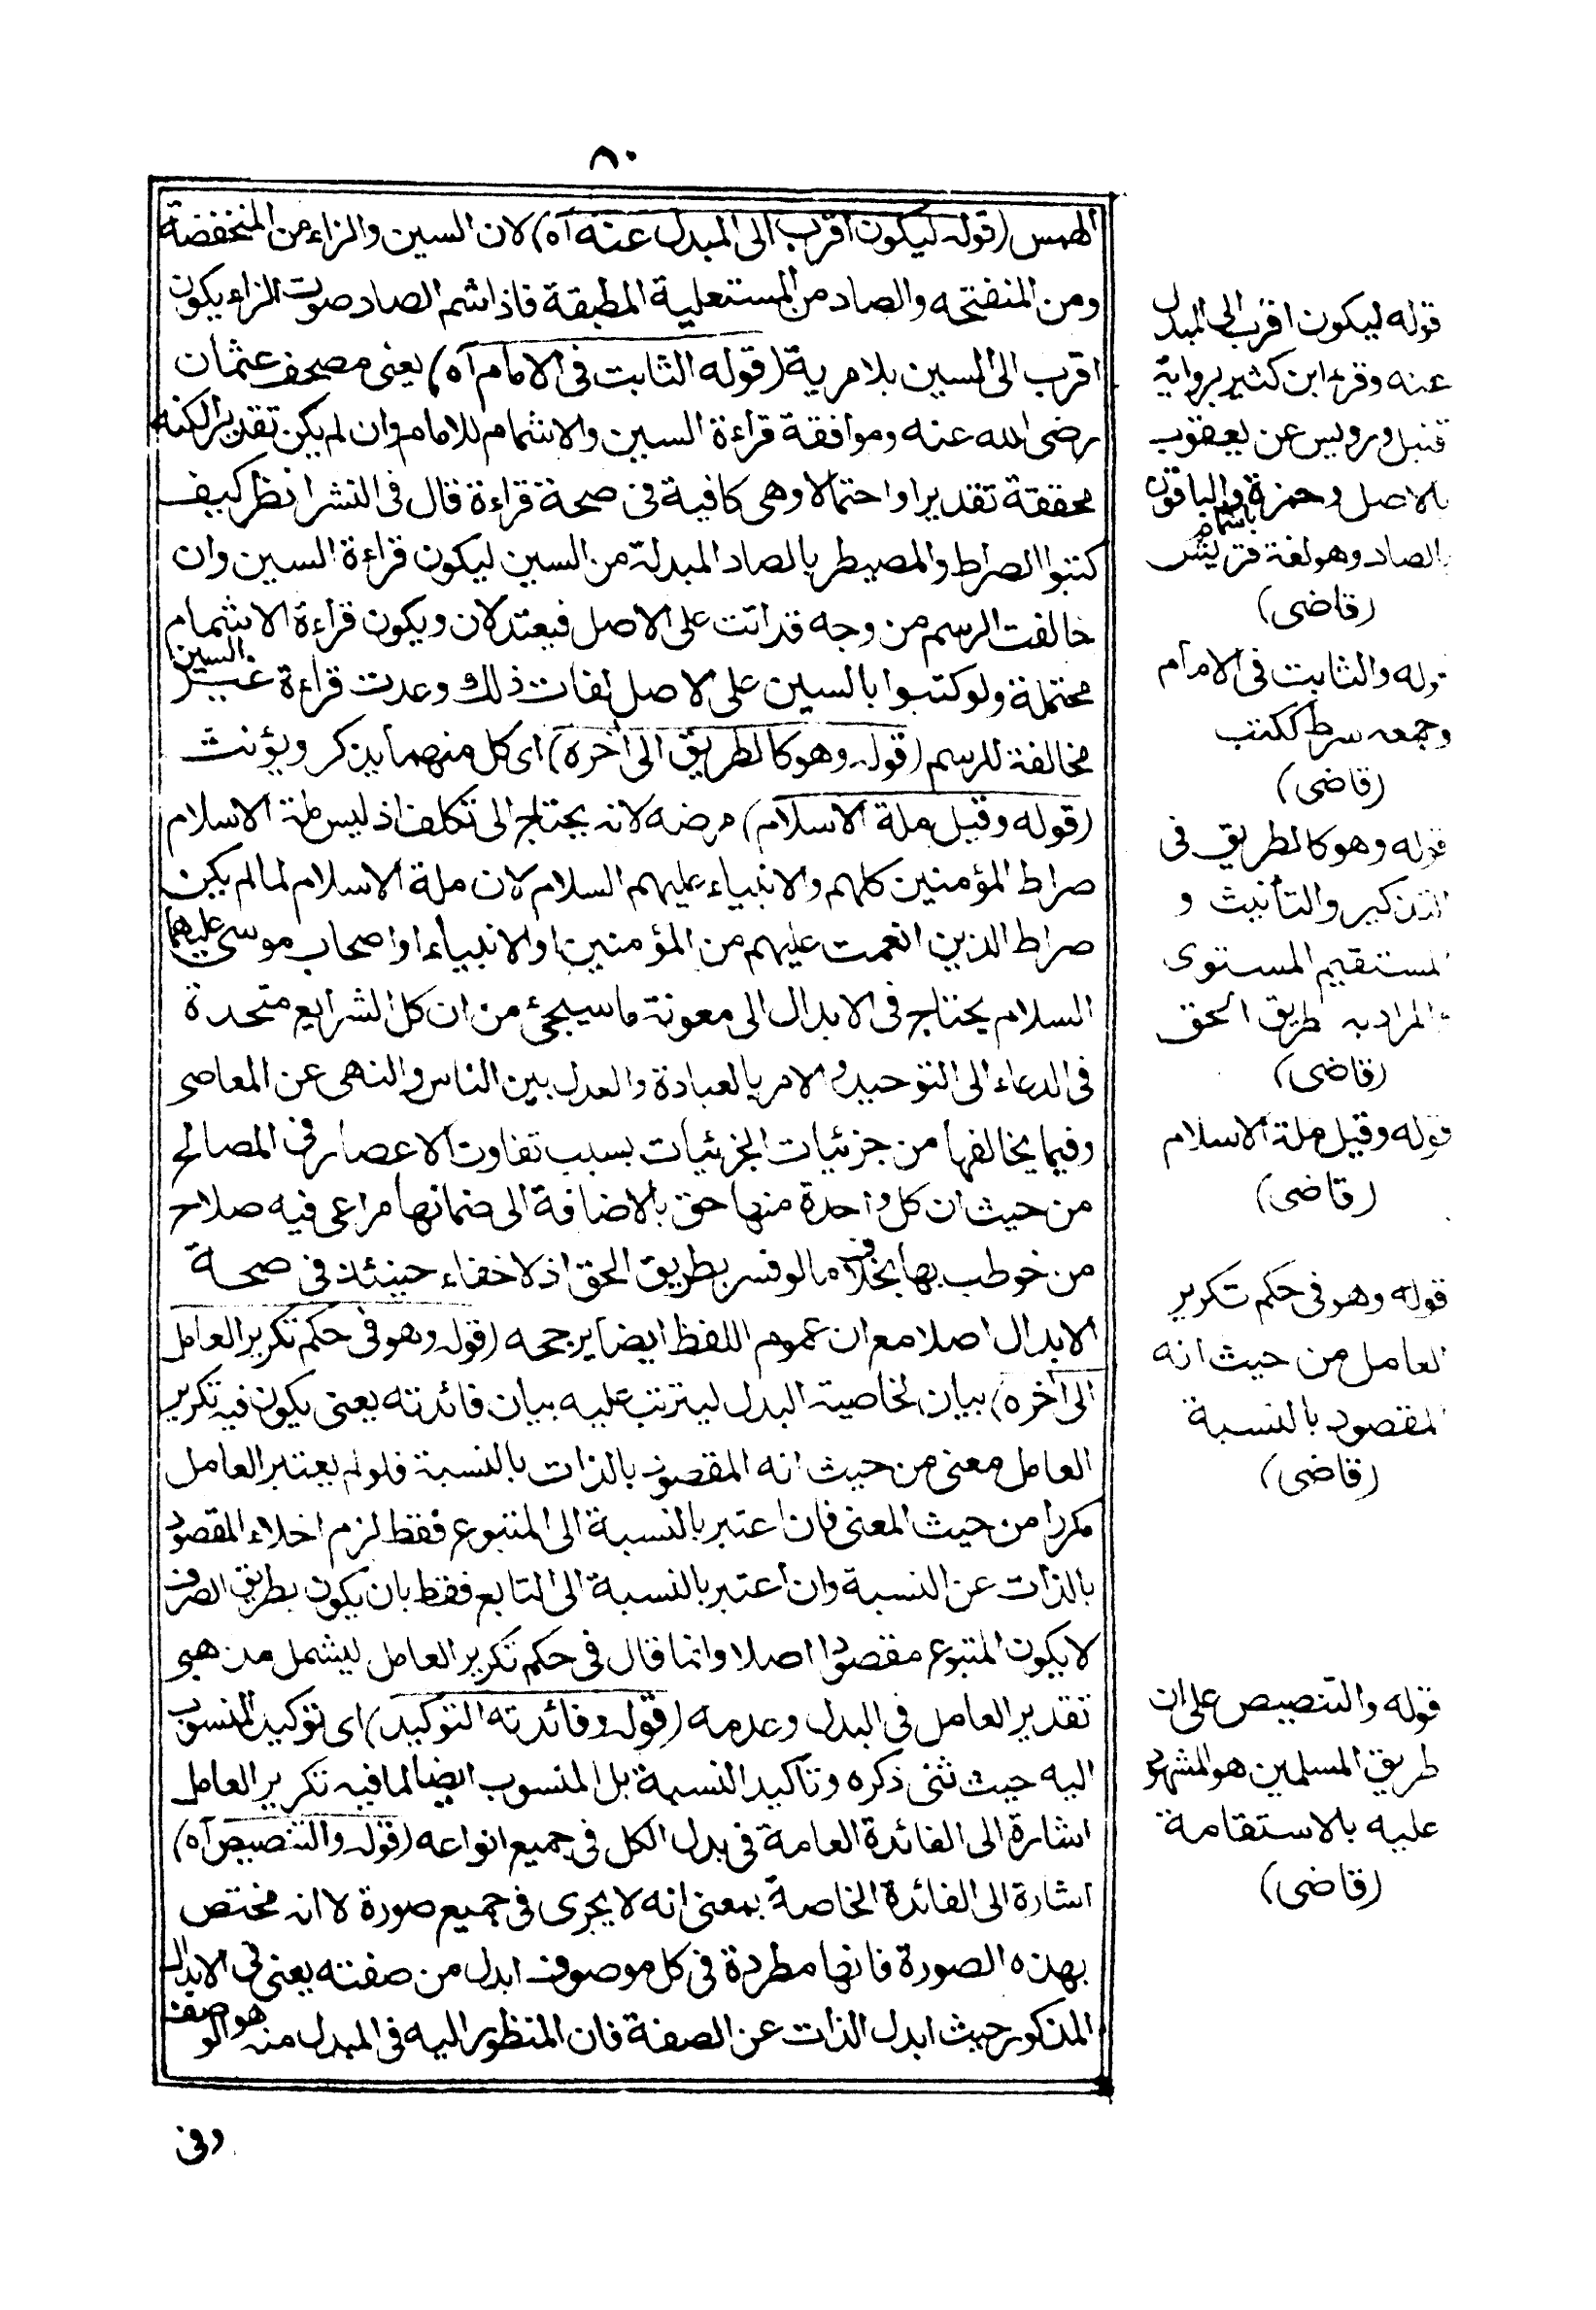 ٨٠
الهمس (قوله ليكون اقرب الى المبدل عنه آه) لان السين والزاء من المنخفضة
ومن المنفتحه والصاد من المستعلية المطبقة فاذا شم الصاد صوت الزاء يكون
اقرب الى السين بلا مرية (قوله الثابت فى الامام آه) يعنى مصحف عثمان
رضى الله عنه وموافقة قراءة السين والاشمام للامام وان لم يكن تقدير الكنه
محققة تقديرا واحتمالا وهى كافية فى صحة قراءة قال فى النشر انظر كيف
كتبوا الصراط والمصيطر بالصاد المبدلة من السين ليكون قراءة السين وان
خالفت الرسم من وجه قد اتت على الاصل فيعتدلان ويكون قراءة الاشمام
محتملة ولو كتبوا بالسين على الاصل لفات ذلك وعدت قراءة غير السين
مخالفة للرسم (قوله وهو كالطريق الى آخره) اى كل منهما يذكر ويؤنث
(قوله وقيل ملة الاسلام) مرضه لانه يحتاج الى تكلف اذ ليس ملة الاسلام
صراط المؤمنين كلهم والانبياء عليهم السلام لان ملة الاسلام لما لم يكن
صراط الذين انعمت عليهم من المؤمنين او الانبياء او اصحاب موسى عليهما
السلام يحتاج فى الابدال الى معونة ما سيجئ من ان كل الشرايع متحدة
فى الدعاء الى التوحيد والامر بالعبادة والعدل بين الناس والنهى عن المعاصى
وفيما يخالفها من جزئيات الجزئيات بسبب تفاوت الاعصار فى المصالح
من حيث ان كل واحدة منها حق بالاضافة الى ضمانها مراعى فيه صلاح
من خوطب بها بخلاف ما لو فسر بطريق الحق اذ لا خفاء حينئذ فى صحة
الابدال اصلا مع ان عموم اللفظ ايضا يرجحه (قوله وهو فى حكم تكرير العامل
الى آخره) بيان لخاصية البدل ليترتب عليه بيان فائدته يعنى يكون فيه تكرير
العامل معنى من حيث انه المقصود بالذات بالنسبة فلو لم يعتبر العامل
مكررا من حيث المعنى فان اعتبر بالنسبة الى المتبوع فقط لزم اخلاء المقصود
بالذات عن النسبة وان اعتبر بالنسبة الى التابع فقط بان يكون بطريق الصرف
لا يكون المتبوع مقصودا اصلا وانما قال فى حكم تكرير العامل ليشمل مذهبى
تقدير العامل فى البدل وعدمه (قوله وفائدته التوكيد) اى توكيد المنسوب
اليه حيث ثنى ذكره وتأكيد النسبة بل المنسوب ايضا لما فيه تكرير العامل
اشارة الى الفائدة العامة فى بدل الكل فى جميع انواعه (قوله والتنصيص آه)
اشارة الى الفائدة الخاصة بمعنى انه لا يجرى فى جميع صورة لا انه مختص
بهذه الصورة فانها مطردة فى كل موصوف ابدل من صفته يعنى فى الابدال
المذكور حيث ابدل الذات عن الصفة فان المنظور اليه فى المبدل منه هو الوصف
وفى
قوله ليكون اقرب الى المبدل
عنه وقرء ابن كثير برواية
قنبل ورويس عن يعقوب
بالاصل وحمزة باشمام والباقون
بالصاد وهو لغة قريش
(قاضى)
قوله والثابت فى الامام
وجمعه سرط ككتب
(قاضى)
قوله وهو كالطريق فى
التذكير والتأنيث و
المستقيم المستوى
والمراد به طريق الحق
(قاضى)
قوله وقيل ملة الاسلام
(قاضى)
قوله وهو فى حكم تكرير
العامل من حيث انه
المقصود بالنسبة
(قاضى)
قوله والتنصيص على ان
طريق المسلمين هو المشهود
عليه بالاستقامة
(قاضى)